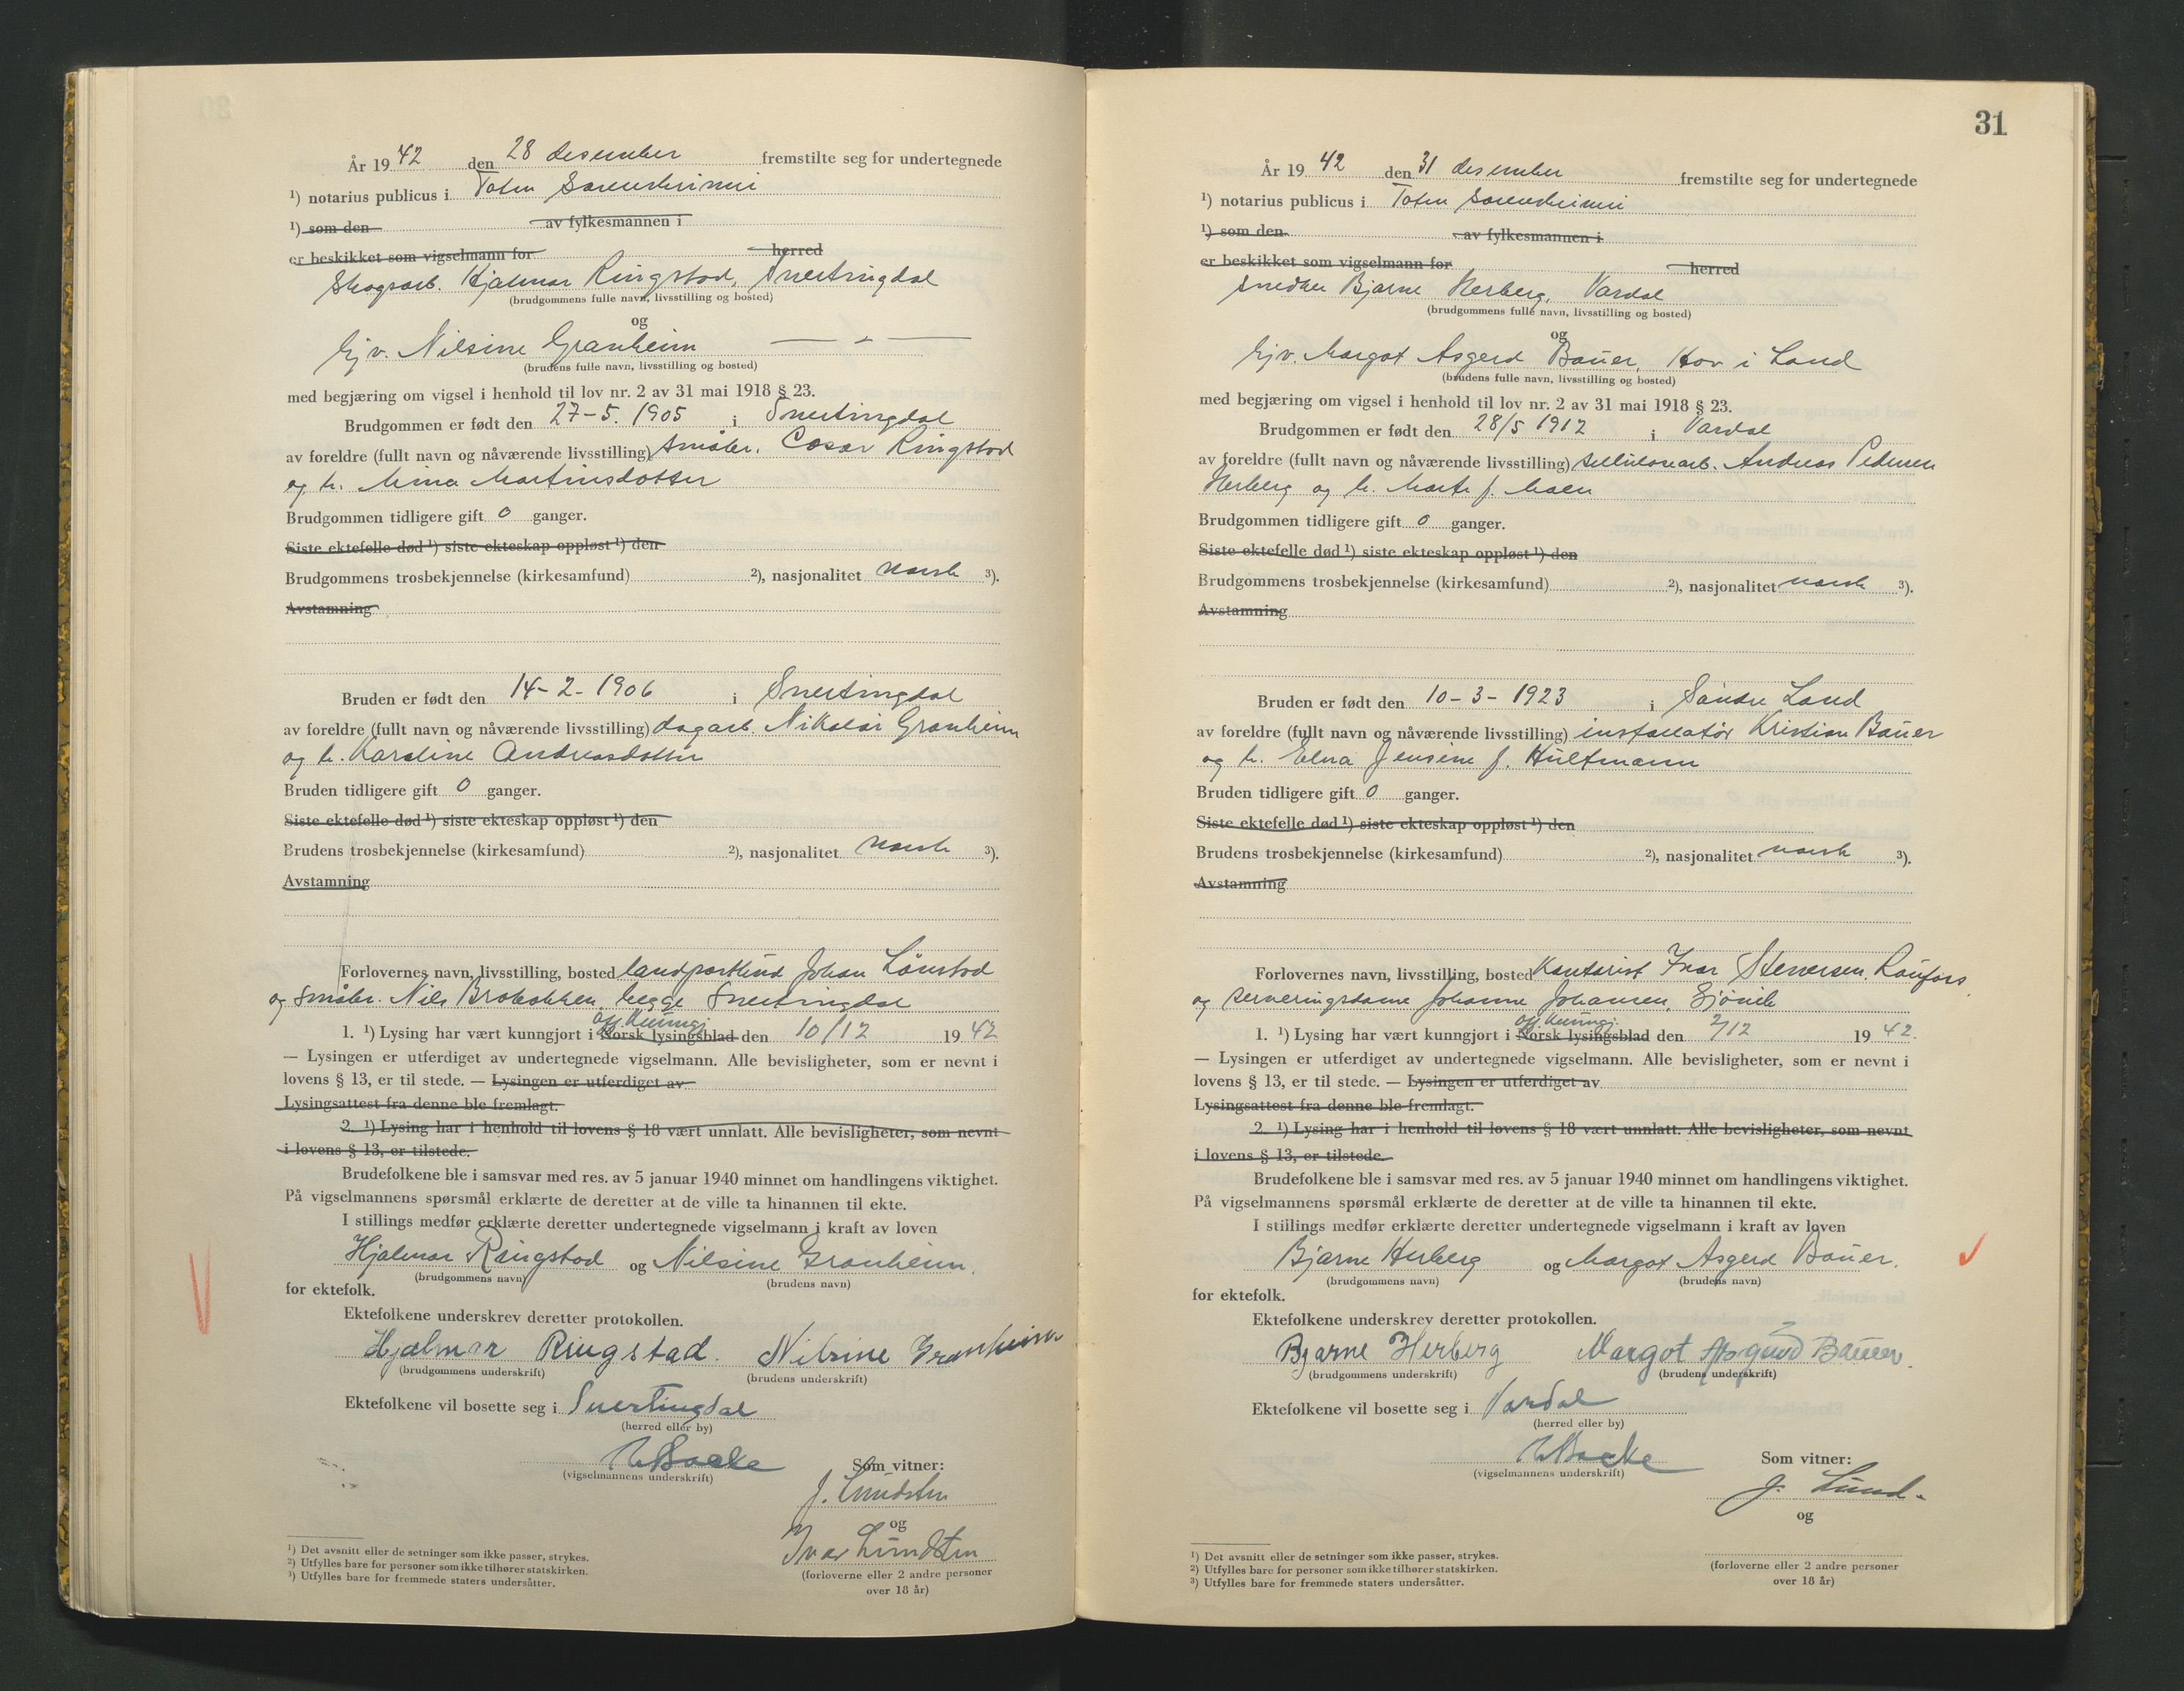 År 19 42 den 28 desember fremstilte seg for undertegnede
¹) notarius publicus i Toten Sorenskriveri
¹) som den av fylkesmannen i
er beskikket som vigselmann for herred
Skogsarb. Hjalmar Ringstad, Snertingdal
(brudgommens fulle navn, livsstilling og bosted)
og
Gjv. Nilsine Granheim — " —
(brudens fulle navn, livsstilling og bosted)
med begjæring om vigsel i henhold til lov nr. 2 av 31 mai 1918 § 23.
Brudgommen er født den 27-5. 1905 i Snertingdal
av foreldre (fullt navn og nåværende livsstilling) småbr. Cæsar Ringstad
og h. Mina Martinsdotter
Brudgommen tidligere gift 0 ganger.
Siste ektefelle død ¹) siste ekteskap oppløst ¹) den
Brudgommens trosbekjennelse (kirkesamfund) ²), nasjonalitet norsk ³).
Avstamning
Bruden er født den 14-2-1906 i Snertingdal
av foreldre (fullt navn og nåværende livsstilling) dagarb. Nikolai Granheim
og h. Karoline Andreasdotter
Bruden tidligere gift 0 ganger.
Siste ektefelle død ¹) siste ekteskap oppløst ¹) den
Brudens trosbekjennelse (kirkesamfund) ²), nasjonalitet norsk ³).
Avstamning
Forlovernes navn, livsstilling, bosted landpostbud Johan Lönstad
og småbr. Nils begge Snertingdal
off. kunngj.
1. ¹) Lysing har vært kunngjort i Norsk lysingsblad den 10/12 19 42
— Lysingen er utferdiget av undertegnede vigselmann. Alle bevisligheter, som er nevnt i
lovens § 13, er til stede. — Lysingen er utferdiget av
Lysingsattest fra denne ble fremlagt.
2. ¹) Lysing har i henhold til lovens § 18 vært unnlatt. Alle bevisligheter, som nevnt
i lovens § 13, er tilstede.
Brudefolkene ble i samsvar med res. av 5 januar 1940 minnet om handlingens viktighet.
På vigselmannens spørsmål erklærte de deretter at de ville ta hinannen til ekte.
I stillings medfør erklærte deretter undertegnede vigselmann i kraft av loven
Hjalmar Ringstad og Nilsine Granheim.
(brudgommens navn) (brudens navn)
for ektefolk.
Ektefolkene underskrev deretter protokollen.
Hjalmar Ringstad. Nilsine Granheim
(brudgommens underskrift) (brudens underskrift)
Ektefolkene vil bosette seg i Snertingdal
(herred eller by)
Backe
(vigselmannens underskrift)
Som vitner:
J. Lundsten
og
Ivar Lundsten
(forloverne eller 2 andre personer
over 18 år)
¹) Det avsnitt eller de setninger som ikke passer, strykes.
²) Utfylles bare for personer som ikke tilhører statskirken.
³) Utfylles bare for fremmede staters undersåtter.
31
År 19 42 den 31 desember fremstilte seg for undertegnede
¹) notarius publicus i Toten Sorenskriveri
¹) som den av fylkesmannen i
er beskikket som vigselmann for herred
Snedker Bjarne Herberg, Vardal
(brudgommens fulle navn, livsstilling og bosted)
og
Gjv. Margot Asgerd Bauer, Hov i Land
(brudens fulle navn, livsstilling og bosted)
med begjæring om vigsel i henhold til lov nr. 2 av 31 mai 1918 § 23.
Brudgommen er født den 28/5 1912 i Vardal
av foreldre (fullt navn og nåværende livsstilling) cellulosearb. Andreas Pedersen
Herberg og h. Marte f. Moen
Brudgommen tidligere gift 0 ganger.
Siste ektefelle død ¹) siste ekteskap oppløst ¹) den
Brudgommens trosbekjennelse (kirkesamfund) ²), nasjonalitet norsk ³).
Avstamning
Bruden er født den 10-3-1923 i Søndre Land
av foreldre (fullt navn og nåværende livsstilling) installatör Kristian Bauer
og h. Elna Jensine f. Hultmann
Bruden tidligere gift 0 ganger.
Siste ektefelle død ¹) siste ekteskap oppløst ¹) den
Brudens trosbekjennelse (kirkesamfund) ²), nasjonalitet norsk ³).
Avstamning
Forlovernes navn, livsstilling, bosted Kontorist Ivar Stenersen, Raufoss
og serveringsdame Johanne Johansen, Gjövik
off. kunngj.
1. ¹) Lysing har vært kunngjort i Norsk lysingsblad den 2/12 19 42.
— Lysingen er utferdiget av undertegnede vigselmann. Alle bevisligheter, som er nevnt i
lovens § 13, er til stede. — Lysingen er utferdiget av
Lysingsattest fra denne ble fremlagt.
2. ¹) Lysing har i henhold til lovens § 18 vært unnlatt. Alle bevisligheter, som nevnt
i lovens § 13, er tilstede.
Brudefolkene ble i samsvar med res. av 5 januar 1940 minnet om handlingens viktighet.
På vigselmannens spørsmål erklærte de deretter at de ville ta hinannen til ekte.
I stillings medfør erklærte deretter undertegnede vigselmann i kraft av loven
Bjarne Herberg og Margot Asgerd Bauer.
(brudgommens navn) (brudens navn)
for ektefolk.
Ektefolkene underskrev deretter protokollen.
Bjarne Herberg Margot Asgerd Bauer.
(brudgommens underskrift) (brudens underskrift)
Ektefolkene vil bosette seg i Vardal
(herred eller by)
Backe
(vigselmannens underskrift)
Som vitner:
J. Lund.
og
(forloverne eller 2 andre personer
over 18 år)
¹) Det avsnitt eller de setninger som ikke passer, strykes.
²) Utfylles bare for personer som ikke tilhører statskirken.
³) Utfylles bare for fremmede staters undersåtter.